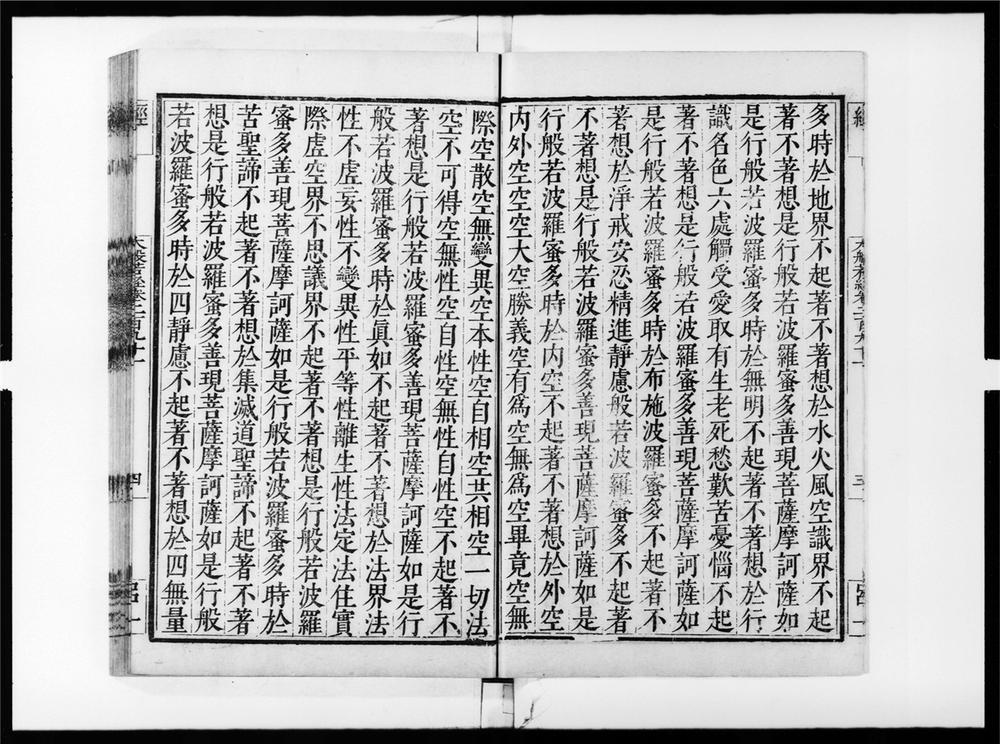 多時於地界不起著不著想於水火風空識界不起
著不著想是行般若波羅蜜多善現菩薩摩訶薩如
是行般若波羅蜜多時於無明不起著不著想於行
識名色六處觸受愛取有生老死愁歎苦憂惱不起
著不著想是行般若波羅蜜多善現菩薩摩訶薩如
是行般若波羅蜜多時於布施波羅蜜多不起著不
著想於淨戒安忍精進靜慮般若波羅蜜多不起著
不著想是行般若波羅蜜多善現菩薩摩訶薩如是
行般若波羅蜜多時於内空不起著不著想於外空
内外空空空大空勝義空有爲空無爲空畢竟空無
際空散空無變異空本性空自相空共相空一切法
空不可得空無性空自性空無性自性空不起著不
著想是行般若波羅蜜多善現菩薩摩訶薩如是行
般若波羅蜜多時於眞如不起著不著想於法界法
性不虛妄性不變異性平等性離生性法定法住實
際虛空界不思議界不起著不著想是行般若波羅
蜜多善現菩薩摩訶薩如是行般若波羅蜜多時於
苦聖諦不起著不著想於集滅道聖諦不起著不著
想是行般若波羅蜜多善現菩薩摩訶薩如是行般
若波羅蜜多時於四靜慮不起著不著想於四無量
經
大般若經卷二百九十一
四